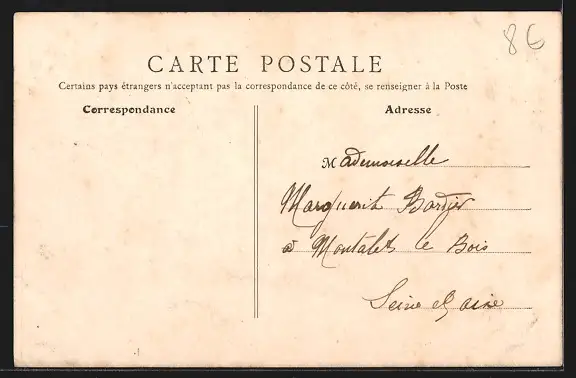 86
CARTE POSTALE
Certains pays étrangers n'acceptant pas la correspondance de ce côté, se renseigner à la Poste
Correspondance
Adresse
Mademoiselle
Marguerite Bordier
à Montalet le Bois
Seine et Oise